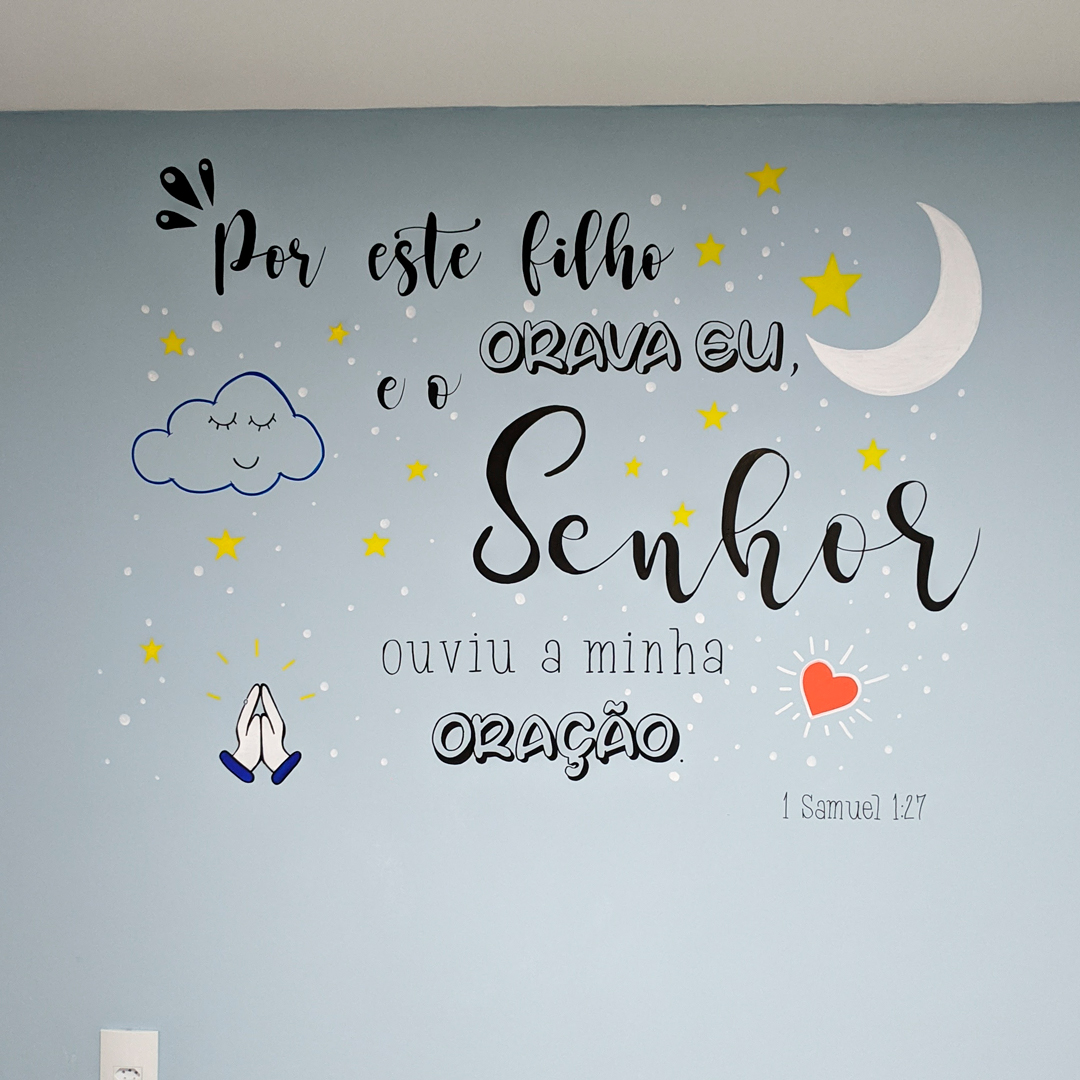 Por este filho
ORAVA EU,
e o
Senhor
ouviu a minha
ORAÇÃO.
1 Samuel 1:27